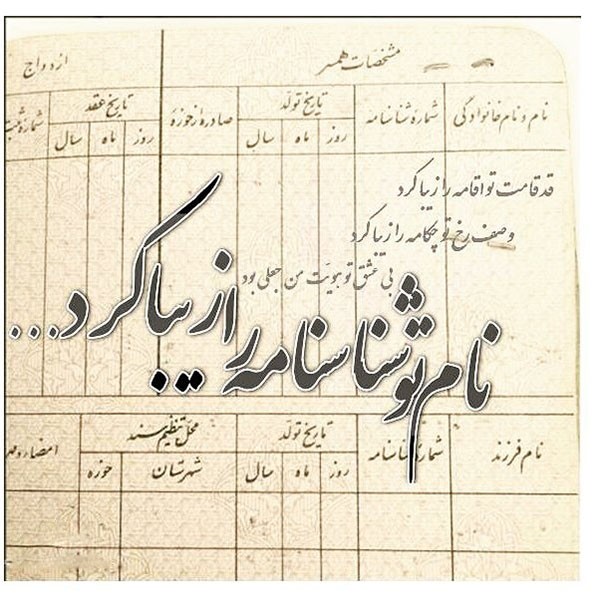 مشخصات همسر
ازدواج
نام و نام خانوادگی
شمارهٔ شناسنامه
تاریخ تولد
روز ماه سال
صادره از حوزهٔ
تاریخ عقد
روز ماه سال
قد قامت تو اقامه را زیبا کرد
وصف رخ تو چکامه را زیبا کرد
بی عشق تو هویت من جعلی بود
نام تو شناسنامه را زیبا کرد...
نام فرزند
شمارهٔ شناسنامه
تاریخ تولد
روز ماه سال
محل تنظیم سند
شهرستان حوزه
امضاء و مهر